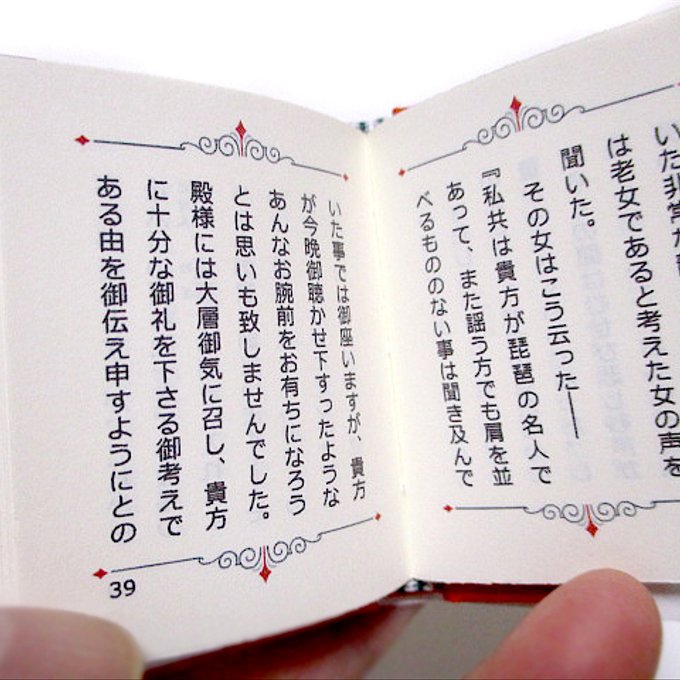 いた非常な
は老女であると考えた女の声を
聞いた。
その女はこう云った――
『私共は貴方が琵琶の名人で
あって、また謡う方でも肩を並
べるもののない事は聞き及んで
いた事では御座いますが、貴方
が今晩御聴かせ下すったような
あんなお腕前をお有ちになろう
とは思いも致しませんでした。
殿様には大層御気に召し、貴方
に十分な御礼を下さる御考えで
ある由を御伝え申すようにとの
39